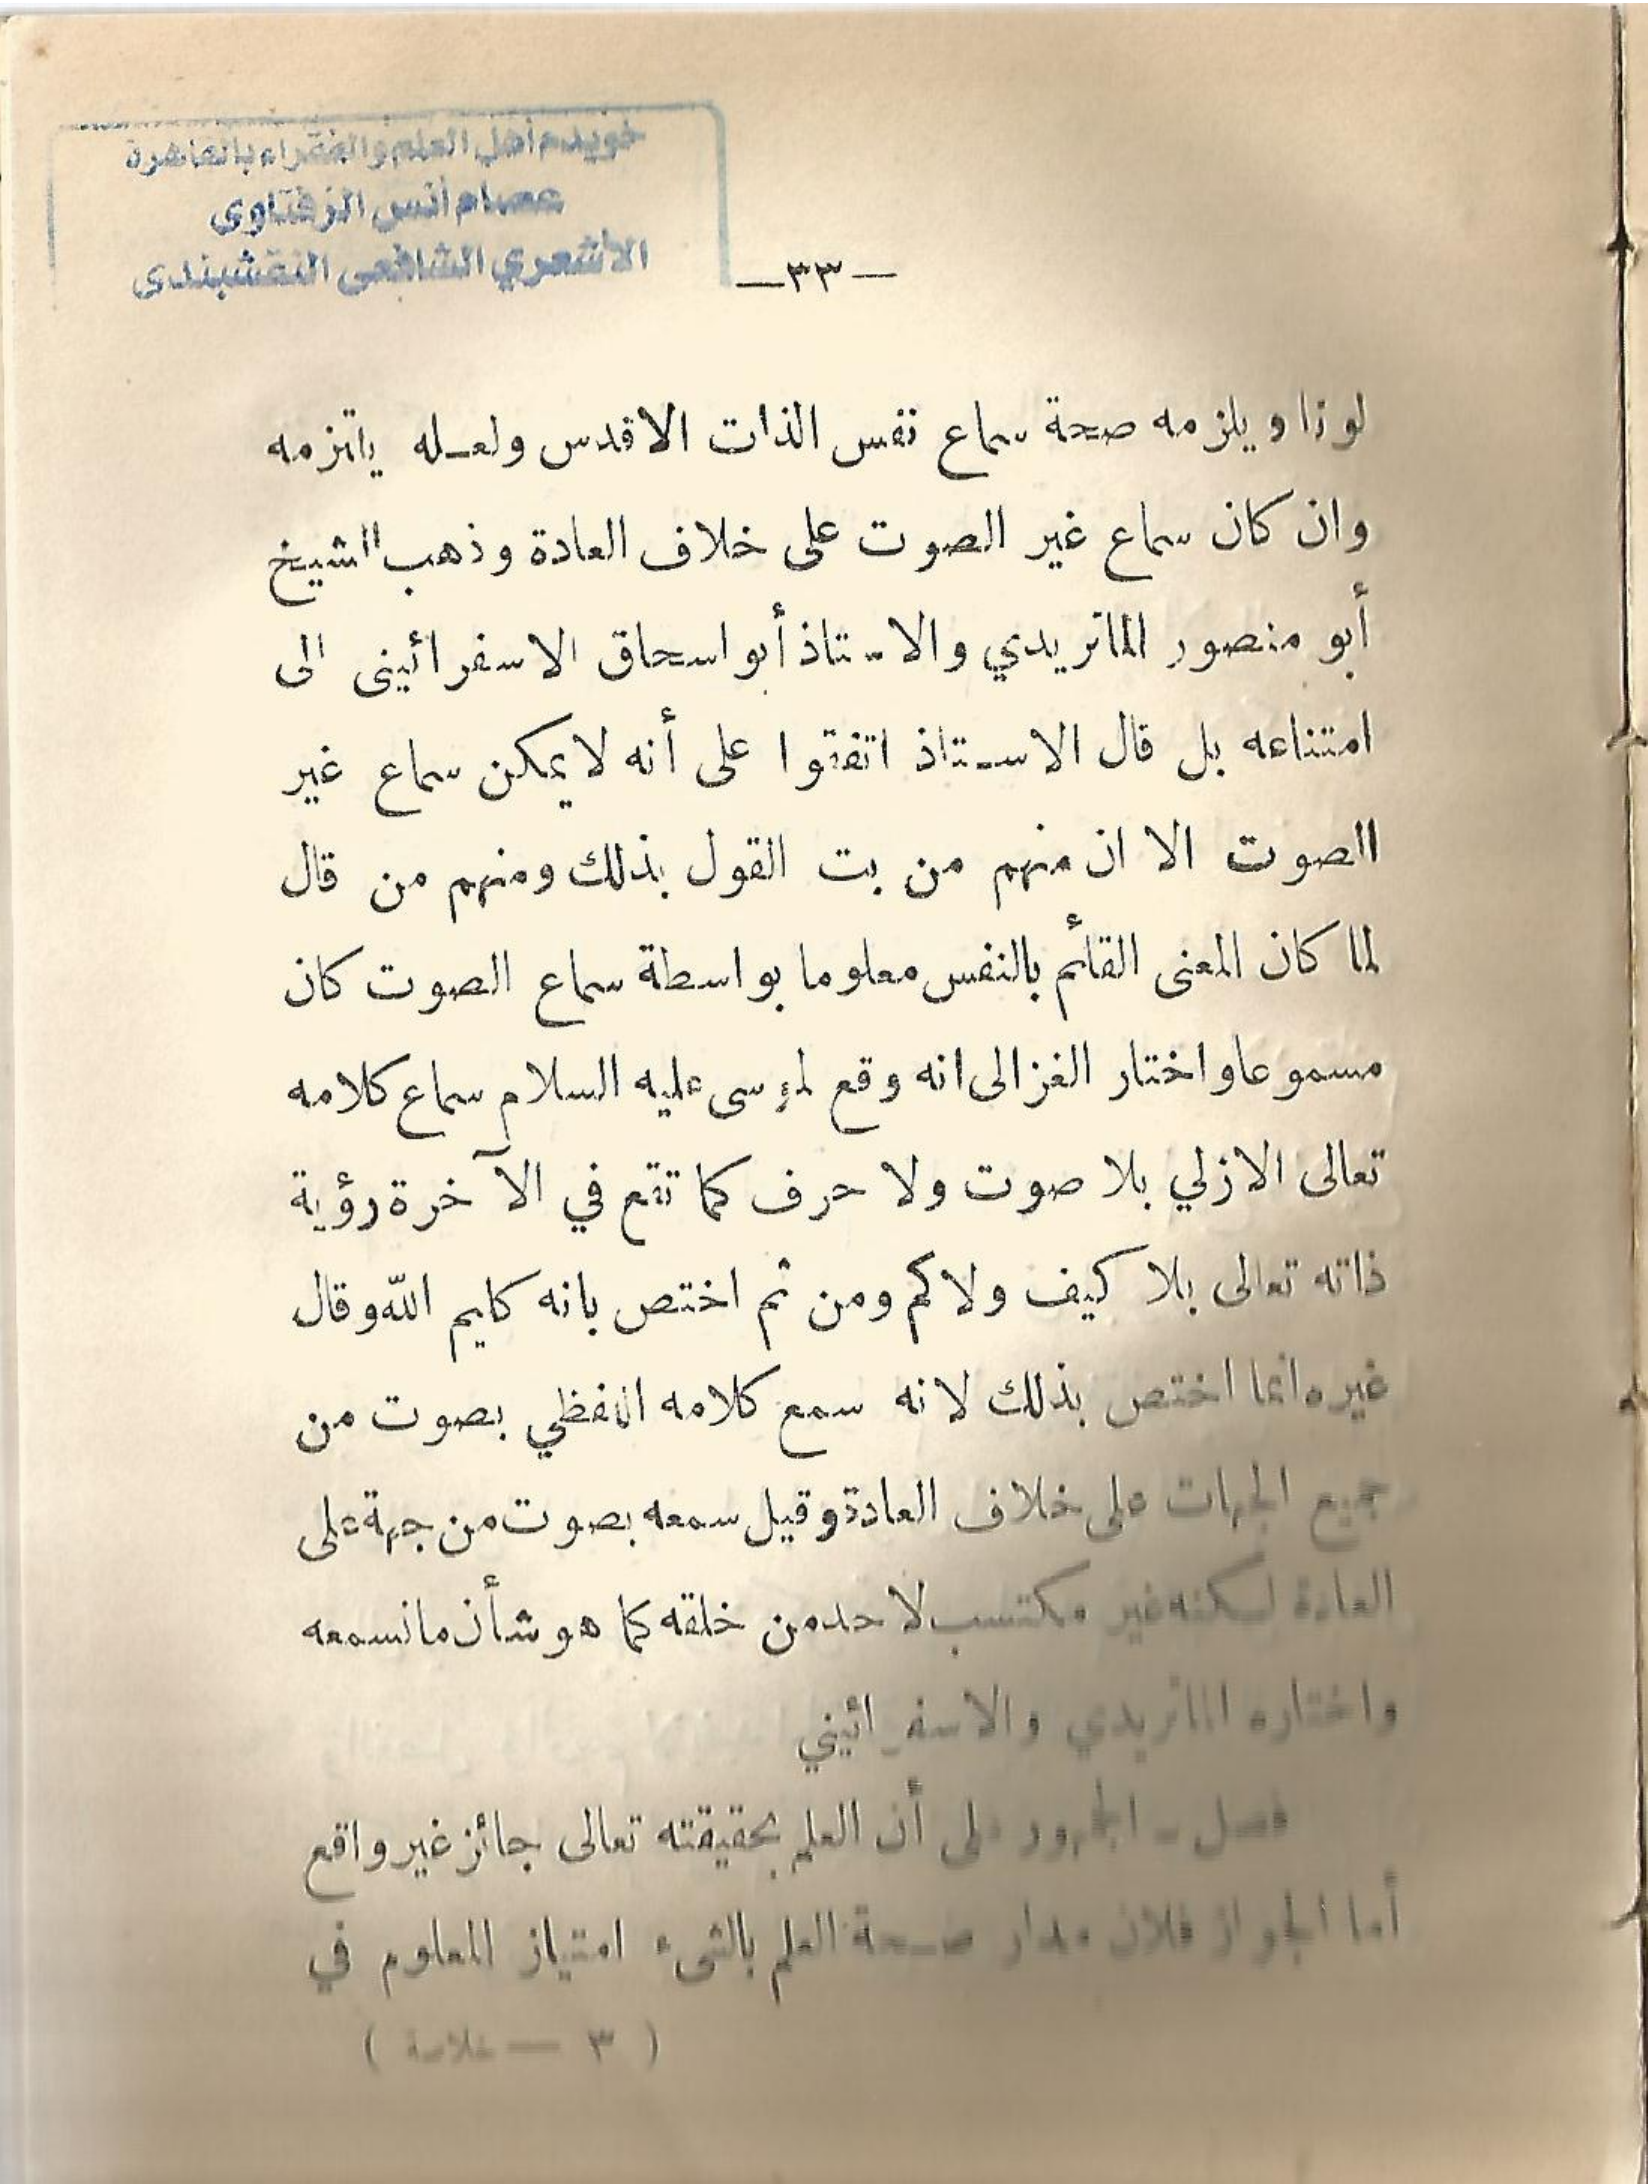 خويدم أهل العلم والفقراء بالقاهرة
عصام أنس الزفتاوى
الأشعري الشافعى النقشبندى
— ٣٣ —
لونا ويلزمه صحة سماع نفس الذات الاقدس ولعله يلتزمه
وان كان سماع غير الصوت على خلاف العادة وذهب الشيخ
أبو منصور الماتريدي والاستاذ أبو اسحاق الاسفرائينى الى
امتناعه بل قال الاستاذ اتفقوا على أنه لا يمكن سماع غير
الصوت الا ان منهم من بت القول بذلك ومنهم من قال
لما كان المعنى القائم بالنفس معلوما بواسطة سماع الصوت كان
مسموعا واختار الغزالى انه وقع لموسى عليه السلام سماع كلامه
تعالى الازلي بلا صوت ولا حرف كما تقع في الآخرة رؤية
ذاته تعالى بلا كيف ولا كم ومن ثم اختص بانه كليم الله وقال
غيره انما اختص بذلك لانه سمع كلامه اللفظي بصوت من
جميع الجهات على خلاف العادة وقيل سمعه بصوت من جهة على
العادة لكنه غير مكتسب لاحد من خلقه كما هو شأن ما نسمعه
واختاره الماتريدي والاسفرائيني
فصل - الجمهور على أن العلم بحقيقته تعالى جائز غير واقع
أما الجواز فلان مدار صحة العلم بالشىء امتياز المعلوم في
( ٣ — خلاصة )